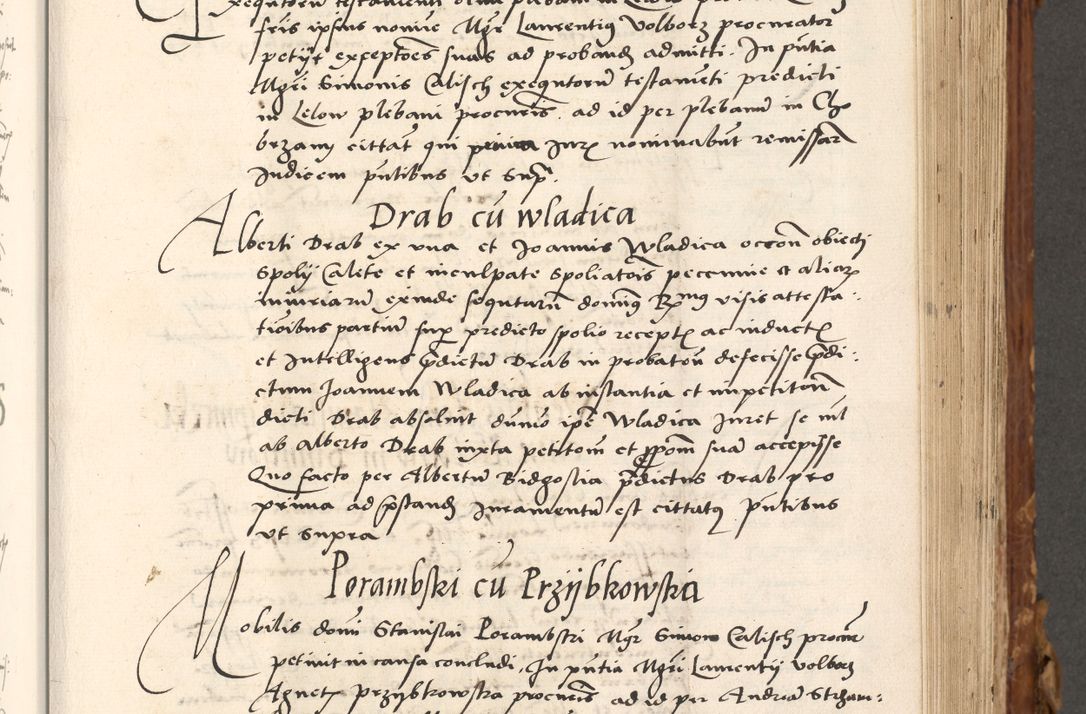 Exequtorū testamenti olim plebani in Lelow
fris ipsius nomine Mgr Laurentius Volborz procurator
petijt exceptōes suas ad probandū admitti. In pn̄tia
Mgri Simonis Calisch exequtorū testamēti predicti
in Lelow plebani procurīs. ad id per plebanū in Cho
brzany cittat qui prima Jur nominabūt remissarū
Judicem pn̄tibus vt supr.
Drab cū wladica
Alberti Drab ex vna et Joannis Wladica occōn obiecti
Spolij Calete et inculpate spoliatōis pecunie et aliarz
iniuriarū exinde sequtarū domīus visis attesta:
tiōibus partiū supr predicto spolio recepte ac inducte
et Intelligens p̄dictū Drab in probatōn defecisse p̄di:
ctum Joannem Wladica ab instantia et impetitōn
dicti Drab absoluit dūmō ipē Wladica Juret se nil
ab Alberto Drab iuxta petitōm et ppōm suā accepisse
Quo facto per Albertū Bidgostia p̄dictus Drab pro
prima ad p̄standū Juramentū est cittatus pn̄tibus
vt supra
Porambski cū Przijbkowska
Mobilis domi Stanislai Porambski Mgr Simon Calisch procur
petiuit in causa concludi. In pn̄tia Mgri Laurentij Volborz
Agnetis Przybkowska procurīs ad id per Andreā Strzam: